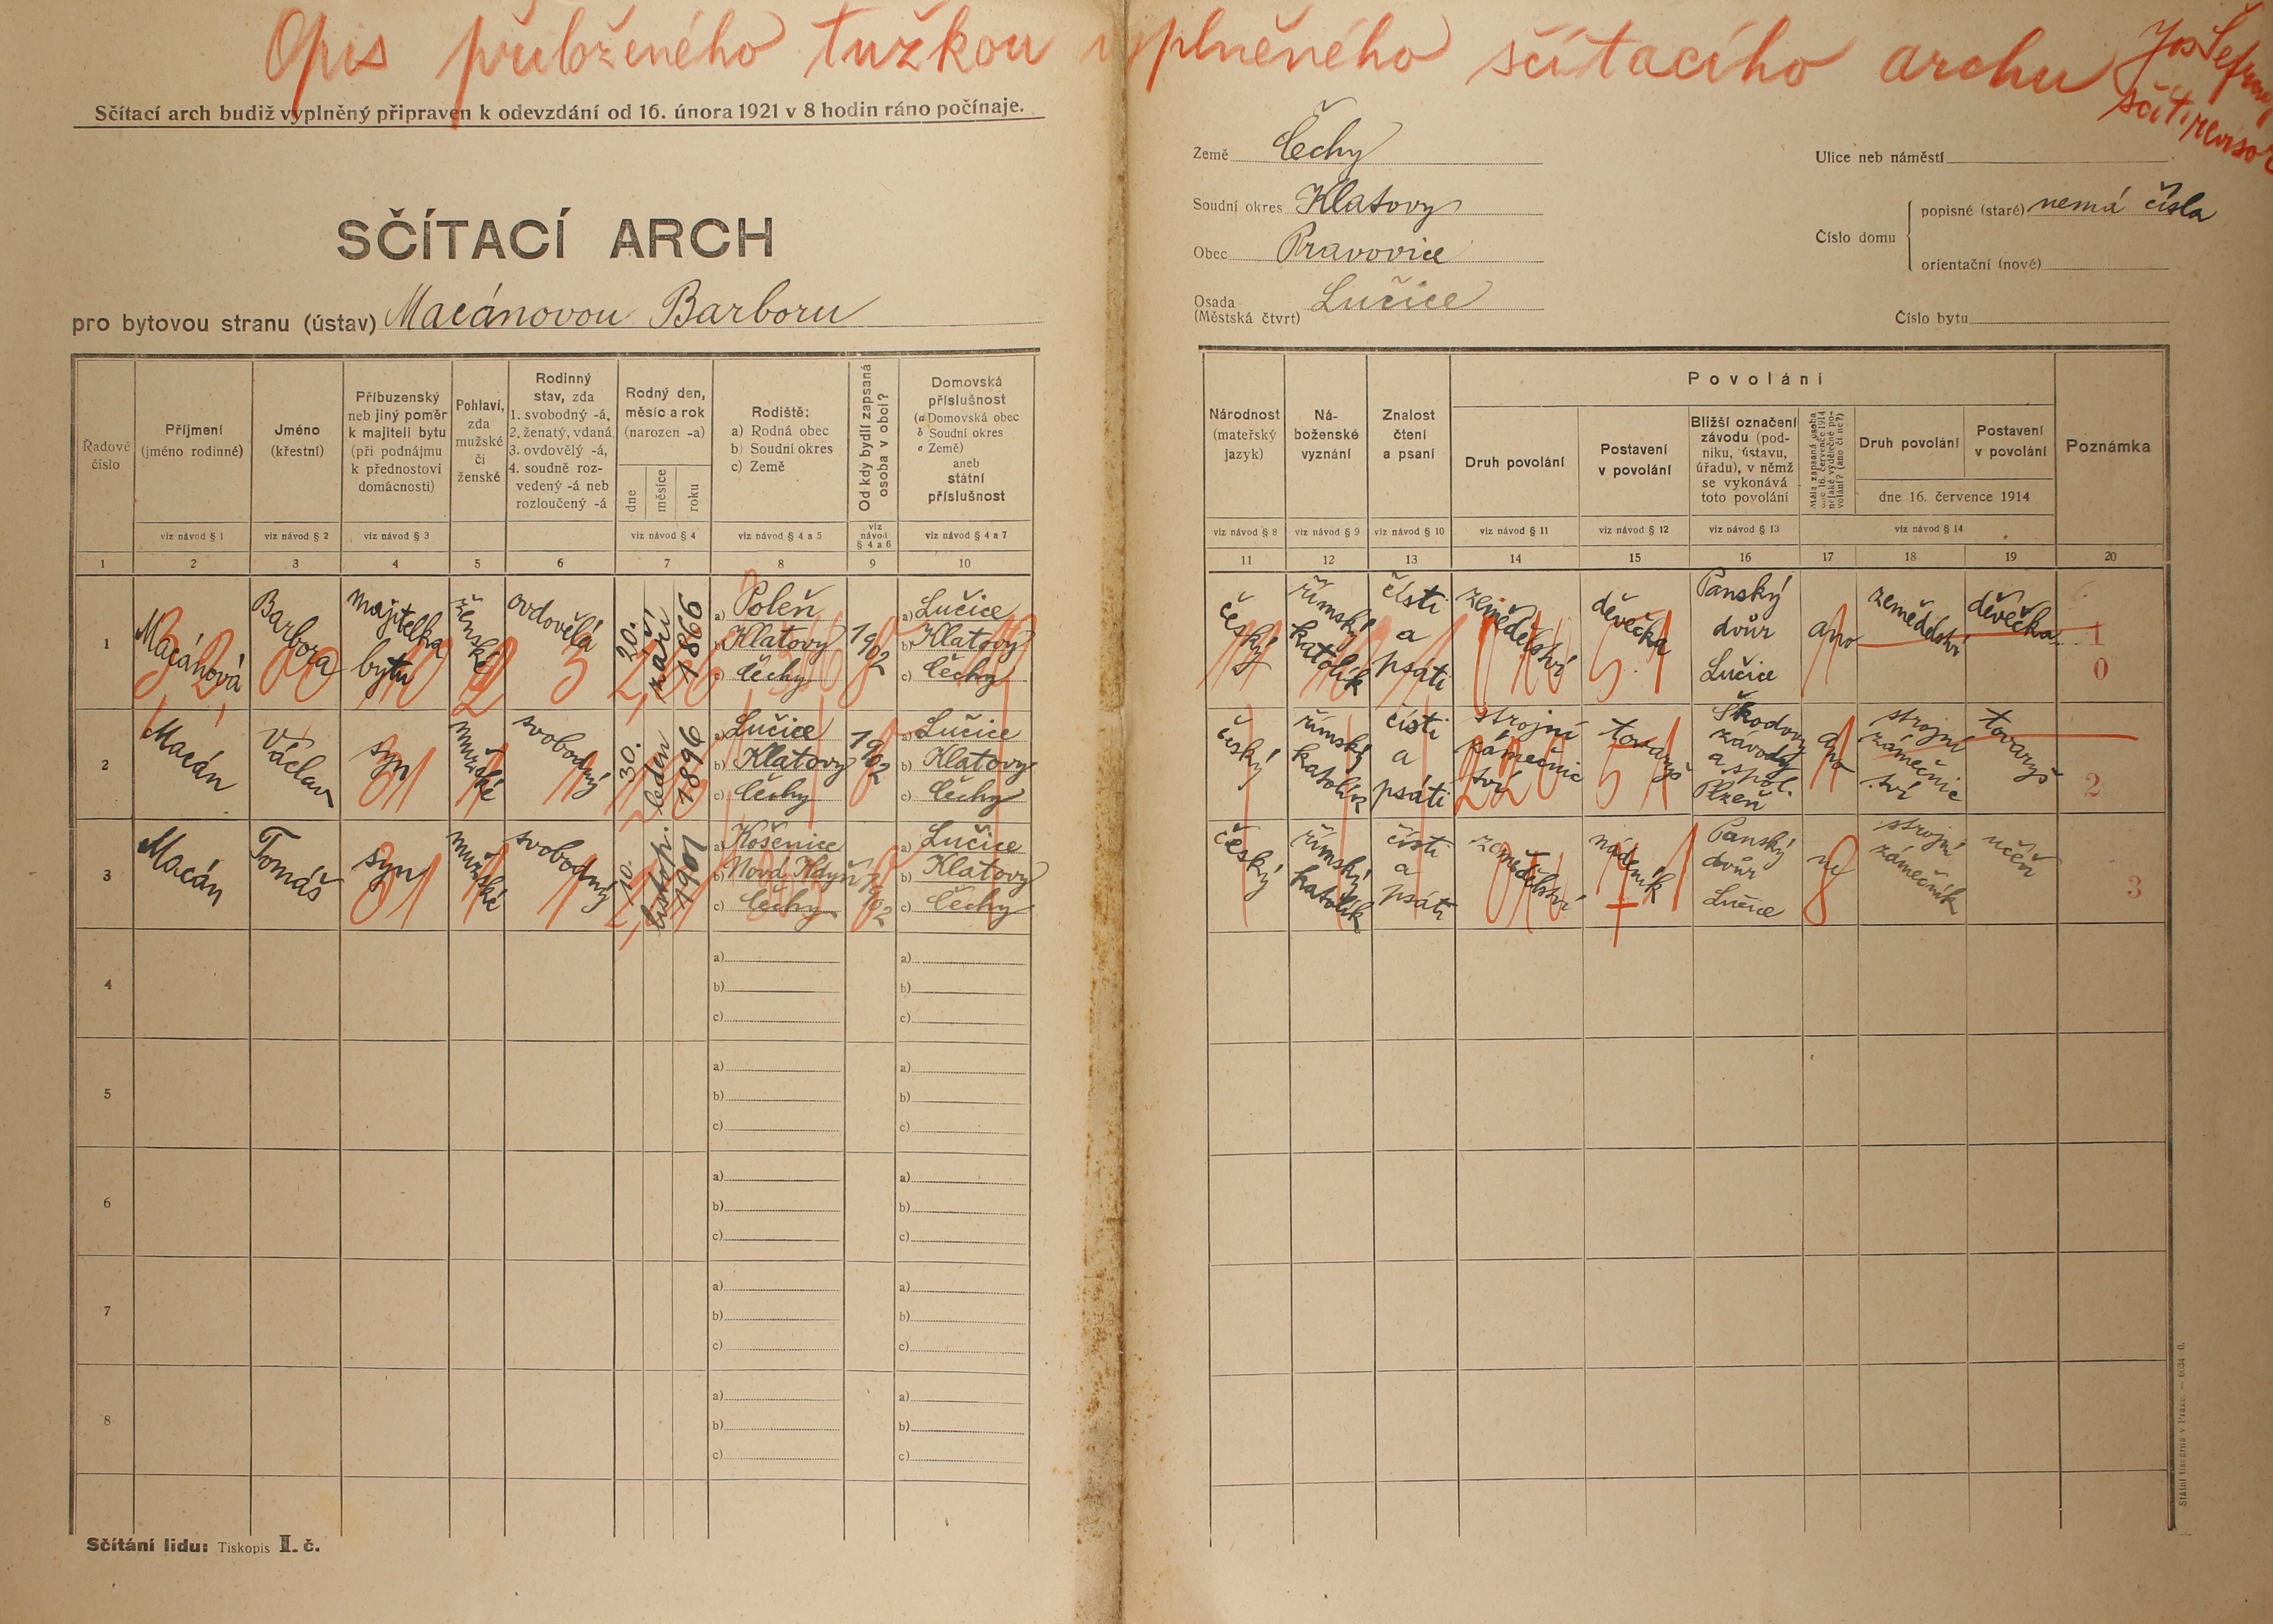 Opis přiloženého tužkou vyplněného sčítacího archu
Jos Šefrna
sčít. revisor
Sčítací arch budiž vyplněný připraven k odevzdání od 16. února 1921 v 8 hodin ráno počínaje.
SČÍTACÍ ARCH
pro bytovou stranu (ústav) Macánovou Barboru
Země Čechy
Soudní okres Klatovy
Obec Pravovice
Osada
(Městská čtvrt) Lučice
Ulice neb náměstí
Číslo domu
popisné (staré) nemá čísla
orientační (nové)
Číslo bytu
Řadové číslo
Příjmení (jméno rodinné)
Jméno (křestní)
Příbuzenský neb jiný poměr k majiteli bytu (při podnájmu k přednostovi domácnosti)
Pohlaví, zda mužské či ženské
Rodinný stav, zda 1. svobodný -á, 2. ženatý, vdaná 3. ovdovělý -á, 4. soudně rozvedený -á neb rozloučený -á
Rodný den, měsíc a rok (narozen -a)
dne měsíce roku
Rodiště:
a) Rodná obec
b) Soudní okres
c) Země
Od kdy bydlí zapsaná osoba v obci?
Domovská příslušnost
(a Domovská obec
b Soudní okres
c Země)
aneb státní příslušnost
viz návod § 1 viz návod § 2 viz návod § 3 viz návod § 4 viz návod § 4 a 5 viz návod § 4 a 6 viz návod § 4 a 7
1 2 3 4 5 6 7 8 9 10
Národnost (mateřský jazyk)
Náboženské vyznání
Znalost čtení a psaní
Povolání
Druh povolání
Postavení v povolání
Bližší označení závodu (podniku, ústavu, úřadu), v němž se vykonává toto povolání
Měla zapsaná osoba dne 16. července 1914 nějaké výdělečné povolání? (ano či ne?)
Druh povolání
Postavení v povolání
dne 16. července 1914
Poznámka
viz návod § 8 viz návod § 9 viz návod § 10 viz návod § 11 viz návod § 12 viz návod § 13 viz návod § 14
11 12 13 14 15 16 17 18 19 20
1 Macánová Barbora majitelka bytu ženské ovdovělá 20. září 1866 a) Poleň b) Klatovy c) Čechy 1902 a) Lučice b) Klatovy c) Čechy
český římský katolík čísti a psáti zemědělství děvečka Panský dvůr Lučice ano zemědělství děvečka 1 0
2 Macán Václav syn mužské svobodný 30. leden 1896 a) Lučice b) Klatovy c) Čechy 1902 a) Lučice b) Klatovy c) Čechy
český římský katolík čísti a psáti strojní zámečnictví tovaryš Škodovy závody a spol. Plzeň ano strojní zámečnictví tovaryš 2
3 Macán Tomáš syn mužské svobodný 10. listop. 1901 a) Košenice b) Nová Kdyň c) Čechy 1902 a) Lučice b) Klatovy c) Čechy
český římský katolík čísti a psáti zemědělství nádeník Panský dvůr Lučice ne strojní zámečník učeň 3
4 a) b) c) a) b) c)
5 a) b) c) a) b) c)
6 a) b) c) a) b) c)
7 a) b) c) a) b) c)
8 a) b) c) a) b) c)
Sčítání lidu: Tiskopis I. č.
Státní tiskárna v Praze. — 6034 0.